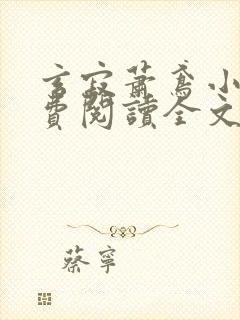 言寂蕭鳶小
費閱讀全文
蔡寧